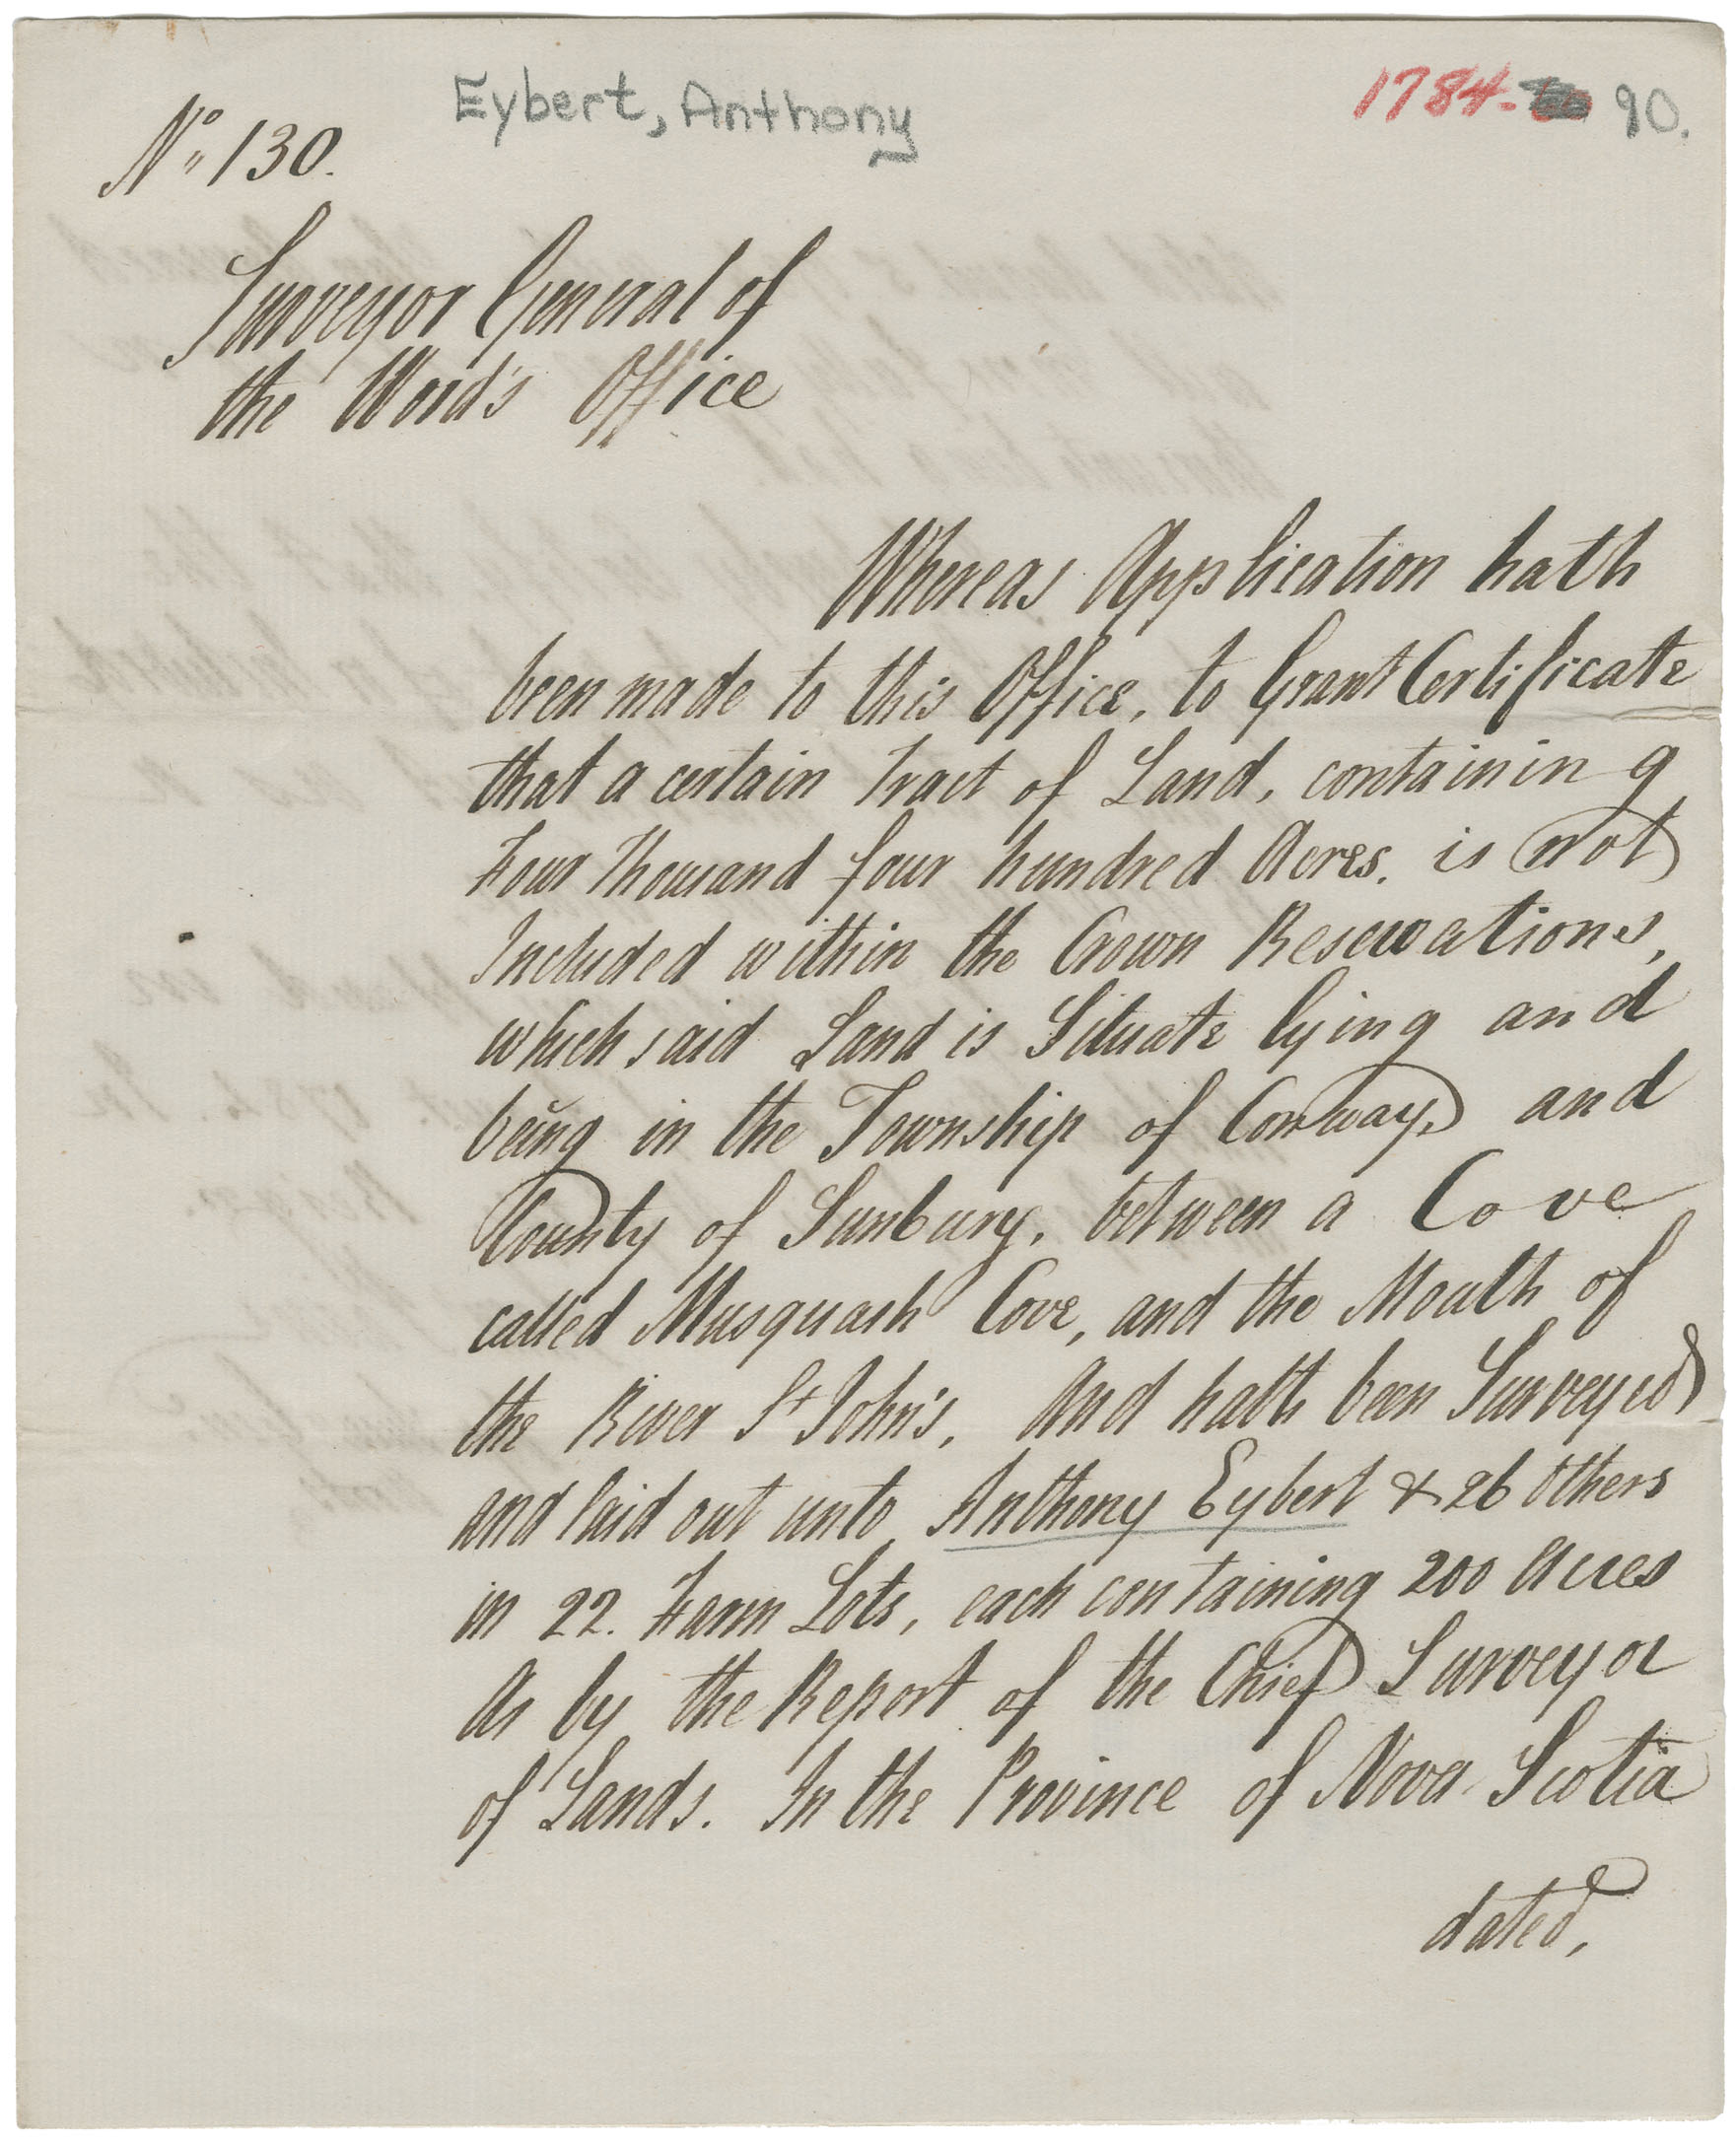 Eybert, Anthony
1784. 90.
No. 130.
Surveyor General of
the Wood's Office
Whereas Application hath
been made to this Office, to Grant Certificate
that a certain Tract of Land, containing
Four Thousand four hundred Acres. is not
Included within the Crown Reservations,
which said Land is Situate lying and
being in the Township of Conway, and
County of Sunbury, between a Cove
called Musquash Cove, and the Mouth of
the River St John's, And hath been Surveyed
and laid out unto Anthony Eybert & 26 Others
in 22. Farm Lots, each containing 200 Acres
As by the Report of the Chief Surveyor
of Lands. In the Province of Nova Scotia
dated,